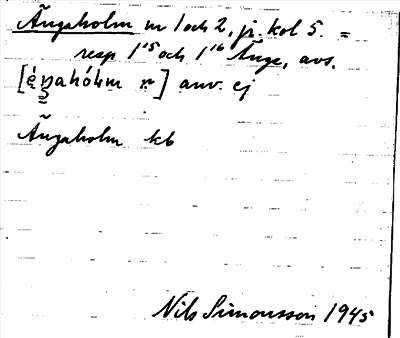 Ängaholm nr 1 och 2, ji. kol 5. =
resp 1¹⁵ och 1¹⁶ Änga, avs.
anv. ej
Ängaholm kb
Nils Simonsson 1945